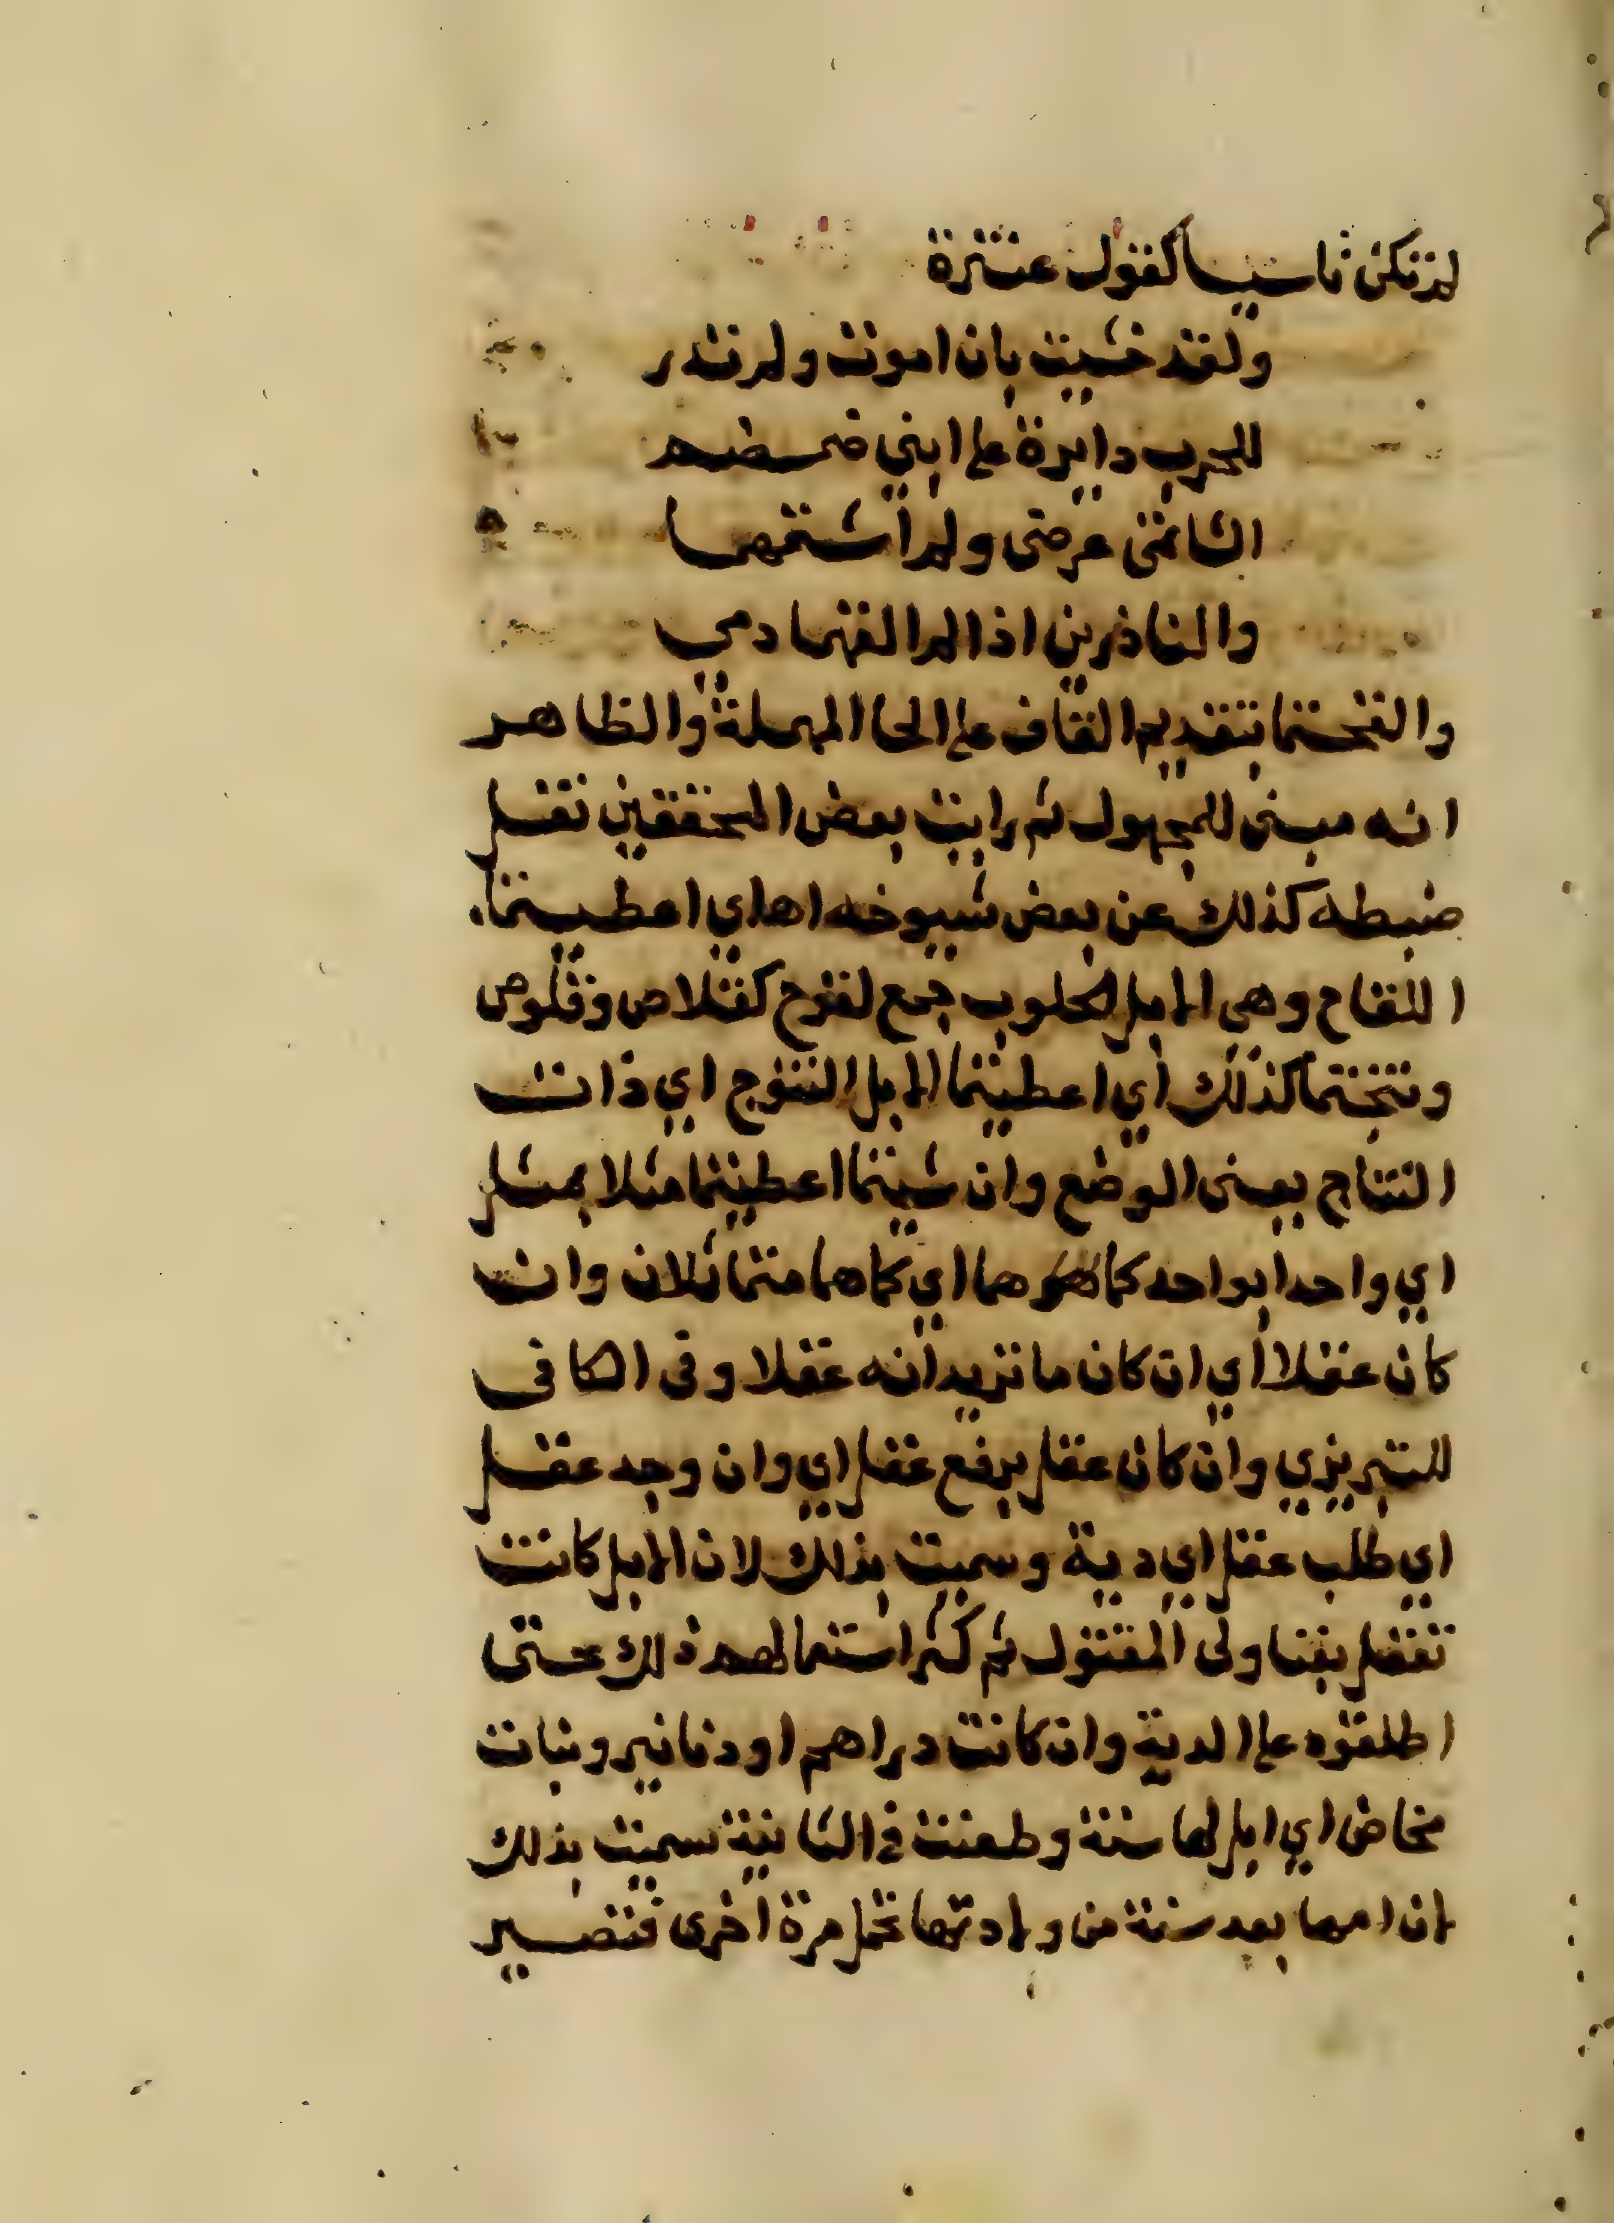 لم تكن ناسيا كقول عنترة
ولقد خشيت بان اموت ولم تدر
للحرب دايرة على ابني ضمضم
الشاتمى عرضى ولم اشتمهما
والناذرين اذا لم القهما دمي
والقحتما بتقديم القاف على الحا المهملة والظاهر
انه مبنى للمجهول ثم رايت بعض المحققين نقل
ضبطه كذلك عن بعض شيوخه اه اي اعطيتما
اللقاح وهي الابل الحلوب جمع لقوح كقلاص وقلوص
ونتجتما كذلك اي اعطيتما الابل النتوج اي ذات
النتاج بمعنى الوضع وان شيتما اعطيتما مثلا بمثل
اي واحدا بواحد كما هما اي كما هما متماثلان وان
كان عقلا اي ان كان ما نريد انه عقلا وفى الكافى
للتبريزي وان كان عقل برفع عقل اي وان وجد عقل
اي طلب عقل اي دية وسميت بذلك لان الابل كانت
تعقل بفنا ولى المقتول ثم كثر استعمالهم ذلك حتى
اطلقوه على الدية وان كانت دراهم او دنانير وبنات
مخاض اي ابل لها سنة وطعنت في الثانية سميت بذلك
لان امها بعد سنة من ولادتها تحمل مرة اخرى فتصير